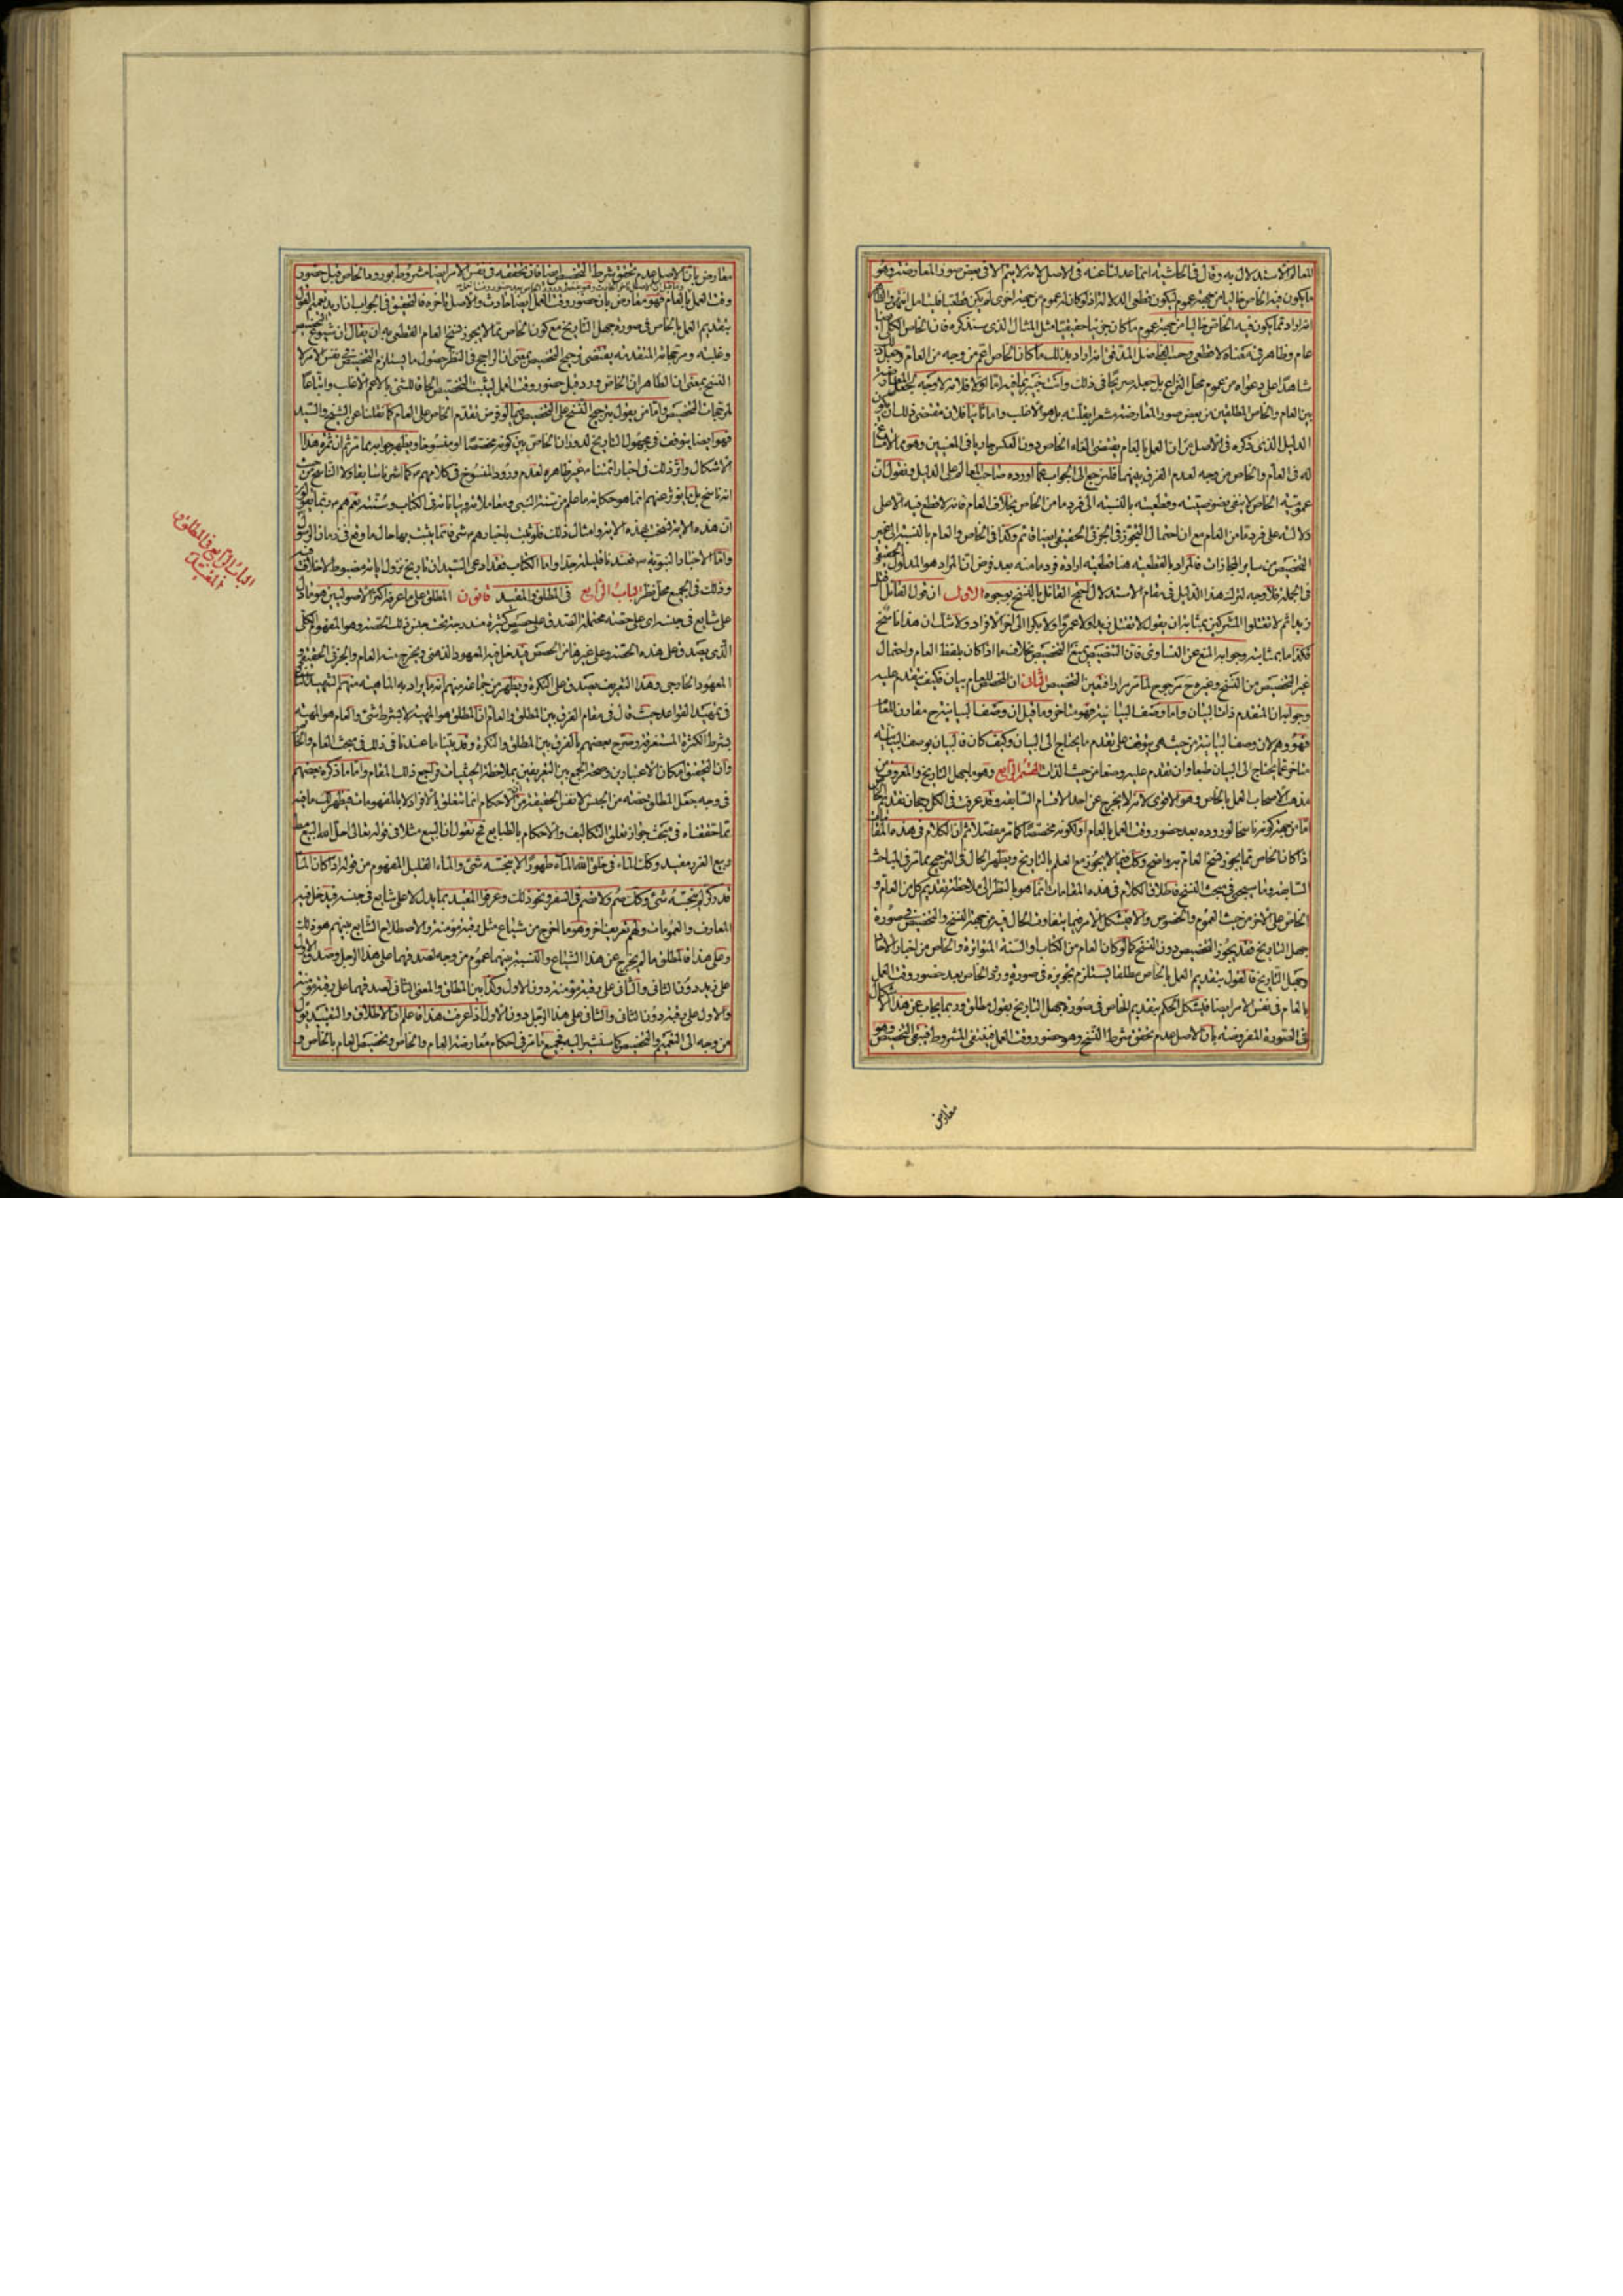 المعالم الاستدلال به وقال في الحاشية انما عدلنا عنه في الاصل لانه لا يتم الا في بعض صور المعارضة وهو
ما يكون فيه الخاص خاليا من جهة عموم ليكون قطعي الدلالة اذ لو كان له عموم من جهة اخرى لم يكن قطعيا فليتامل انتهى
انه اراد بما يكون فيه الخاص خاليا من جهة عموم ما كان جزئيا حقيقيا مثل المثال الذي سنذكره فان الخاص الكلي
عام وظاهر في معناه لا قطعي وحسب الفاضل المدقق انه اراد بذلك ما كان الخاص اعم من وجه من العام وجعل
شاهدا على دعواه من عموم محل النزاع بل جعله صريحا في ذلك وانت خبير بما فيه اما اولا فلانه لا وجه لجعل
بين العام والخاص المطلقين من بعض صور المعارضة مشعرا بقلته بل هو الاغلب واما ثانيا فلان مقتضى ذلك ان
الدليل الذي ذكره في الاصل من ان العمل بالعام يقتضي الغاء الخاص دون العكس جاريا في المعنيين وهو
له في العام والخاص من وجه لعدم الفرق بينهما فلنرجع الى الجواب عما اورده صاحب المعالم على الدليل ونقول ان
عمومية الخاص لا ينفي خصوصيته وقطعيته بالنسبة الى فرد ما من الخاص بخلاف العام فانه لا قطع فيه
دلالته على فرد ما من العام مع ان احتمال التجوز في الجزئي الحقيقي ايضا قائم وكذا في الخاص والعام بالنسبة الى غير
التخصيص من ساير المجازات فالمراد بالقطعية هنا قطعية ارادة فرد ما منه بعد فرض ان المراد هو المدلول الحقيقي
في الجملة فلا وجه لترك هذا الدليل في مقام الاستدلال احتج القائل بالنسخ بوجوه الاول ان قول القائل
زيدا ثم لا تقتلوا المشركين بمثابة ان يقول لا تقتل زيدا ولا عمرا ولا بكرا الى اخر الافراد ولا شك ان هذا ناسخ
فكذا ما بمثابته وجوابه المنع عن التساوي فان التنصيص يمنع التخصيص بخلاف ما اذا كان بلفظ العام واحتمال
غير التخصيص من النسخ وغيره مرجوح لما مر مرارا فتعين التخصيص الثاني ان المخصص للعام بيان فكيف يتقدم عليه
وجوابه ان المتقدم ذات البيان واما وصف البيانية فهو متاخر وما قيل ان وصف البيانية مقارن
فهو وهم لان وصف البيانية من حيث هي يتوقف على تقدم ما يحتاج الى البيان وكيف كان فالبيان بوصف البيانية
متاخر عما يحتاج الى البيان طبعا وان تقدم عليه وضعا من حيث الذات القسم الرابع وهو ما جهل التاريخ والمعروف من
مذهب الاصحاب العمل بالخاص وهو الاقوى لانه لا يخرج عن احد الاقسام السابقة وقد عرفت في الكل رجحان تقديم
اما من جهة كونه ناسخا لوروده بعد حضور وقت العمل بالعام او لكونه مخصصا كما مر مفصلا ثم ان الكلام في هذه
اذا كان الخاص مما يجوز نسخ العام به واضح وكل فيما لا يجوز مع العلم بالتاريخ ويظهر الحال في الترجيح مما مر في المباحث
السابقة وما سيجيء في مبحث النسخ فاطلاق الكلام في هذه المقامات انما هو بالنظر الى ملاحظة تقديم كل من العام و
الخاص على الاخر من حيث العموم والخصوص والا فيشكل الامر فيما يتفاوت الحال فيه من جهة النسخ والتخصيص في صورة
جهل التاريخ فقد يجوز التخصيص دون النسخ كما لو كان العام من الكتاب والسنة المتواترة والخاص من اخبار الاحاد
وجهل التاريخ فالقول بتقديم العمل بالخاص مطلقا يستلزم تجويزه في صورة ورود الخاص بعد حضور وقت العمل
بالعام في نفس الامر ايضا فيشكل الحكم بتقديم الخاص في صورة جهل التاريخ بقول مطلق وربما يجاب عن هذا الاشكال
في الصورة المفروضة بان الاصل عدم تحقق شرط النسخ وهو حضور وقت العمل فينتفي المشروط فيبقى التخصيص وهو
معارض
معارض بان الاصل عدم تحقق شرط التخصيص ايضا فان تحققه في نفس الامر ايضا مشروط بورود الخاص قبل حضور
وقت العمل بالعام فهو معارض بان حضور وقت العمل ايضا حادث والاصل تاخره فالتحقيق في الجواب ان اريد تعميم القول
بتقديم العمل بالخاص في صورة جهل التاريخ مع كون الخاص مما لا يجوز نسخ العام القطعي به ان يقال ان شيوع التخصيص
وغلبته ومرجحاته المتقدمة يقتضي ترجيح التخصيص بمعنى ان الراجح في النظر حصول ما يستلزم التخصيص في نفس الامر لا
النسخ بمعنى ان الظاهر ان الخاص ورد قبل حضور وقت العمل ليثبت التخصيص الحاقا للشيء بالاعم الاغلب واتباعا
لمرجحات التخصيص واما من يقول بترجيح النسخ على التخصيص فيما لو فرض تقدم الخاص على العام كما نقلنا عن الشيخ والسيد
فهو ايضا يتوقف في مجهول التاريخ لدوران الخاص بين كونه مخصصا او منسوخا ويظهر جوابه مما مر ثم ان ثمرة هذا
الاشكال واثر ذلك في اخبار ائمتنا ع غير ظاهرة لعدم ورود المنسوخ في كلامهم ع كما اشرنا سابقا ولا الناسخ من حيث
انه ناسخ بل ما يؤثر عنهم انما هو حكاية ما علم من سنة النبي ص ومعاملاته وبياناته في الكتاب وسنته نعم هم ع ربما يقولون
ان هذه الاية نسخت بهذه الاية وامثال ذلك فلو ثبت باخبارهم ع شيء فانما يثبت بها حال ما وقع في زمان الرسول
واما الاخبار النبوية ص فعندنا قليلة جدا واما الكتاب فقد ادعى السيد ان تاريخ نزول اياته مضبوط لا خلاف فيه
وذلك في الجميع محل نظر الباب الرابع في المطلق والمقيد قانون المطلق على ما عرفه اكثر الاصوليين هو ما دل
على شايع في جنسه اي على حصة محتملة الصدق على حصص كثيرة مندرجة تحت جنس تلك الحصة وهو المفهوم الكلي
الذي يصدق على هذه الحصة وعلى غيرها من الحصص فيدخل فيه المعهود الذهني ويخرج منه العام والجزئي الحقيقي
المعهود الخارجي وهذا التعريف يصدق على النكرة ويظهر من جماعة منهم انه ما يراد به الماهية منهم الشهيد الثاني
في تمهيد القواعد حيث قال في مقام الفرق بين المطلق والعام ان المطلق هو الماهية لا بشرط شيء والعام هو الماهية
بشرط الكثرة المستغرقة وصرح بعضهم بالفرق بين المطلق والنكرة وقد بينا ما عندنا في ذلك في مبحث العام والخاص
وان التحقيق امكان الاعتبارين وصحة الجمع بين التعريفين بملاحظة الحيثيات فراجع ذلك المقام واما ما ذكره بعضهم
في وجه جعل المطلق حصة من الجنس لا نفس الحقيقة من ان الاحكام انما تتعلق بالافراد لا بالمفهومات فيظهر لك ما فيه
مما حققناه في مبحث جواز تعلق التكاليف والاحكام بالطبايع فح نقول ان البيع مثلا في قوله تعالى احل الله البيع مطلق
وبيع الغرر مقيد وكك الماء في خلق الله الماء طهورا لا ينجسه شيء والماء القليل المفهوم من قوله اذا كان الماء
قدر كر لم ينجسه شيء وكك صم ولا تصم في السفر ونحو ذلك وعرفوا المقيد بما يدل لا على شايع في جنسه فيدخل فيه
المعارف والعمومات ولهم تعريف اخر وهو ما اخرج من شياع مثل رقبة مؤمنة والاصطلاح الشايع بينهم هو ذلك
وعلى هذا فالمطلق ما لم يخرج عن هذا الشياع والنسبة بينهما عموم من وجه لصدقهما على هذا الرجل وصدق الاول
على زيد دون الثاني والثاني على رقبة مؤمنة دون الاول وكذا بين المطلق والمعنى الثاني لصدقهما على رقبة مؤمنة
والاول على رقبة دون الثاني والثاني على هذا الرجل دون الاول اذا عرفت هذا فاعلم ان الاطلاق والتقييد يؤل
من وجه الى التعميم والتخصيص كما سنشير اليه فجميع ما مر في احكام معارضة العام والخاص وتخصيص العام بالخاص و
الباب الرابع في المطلق
والمقيد